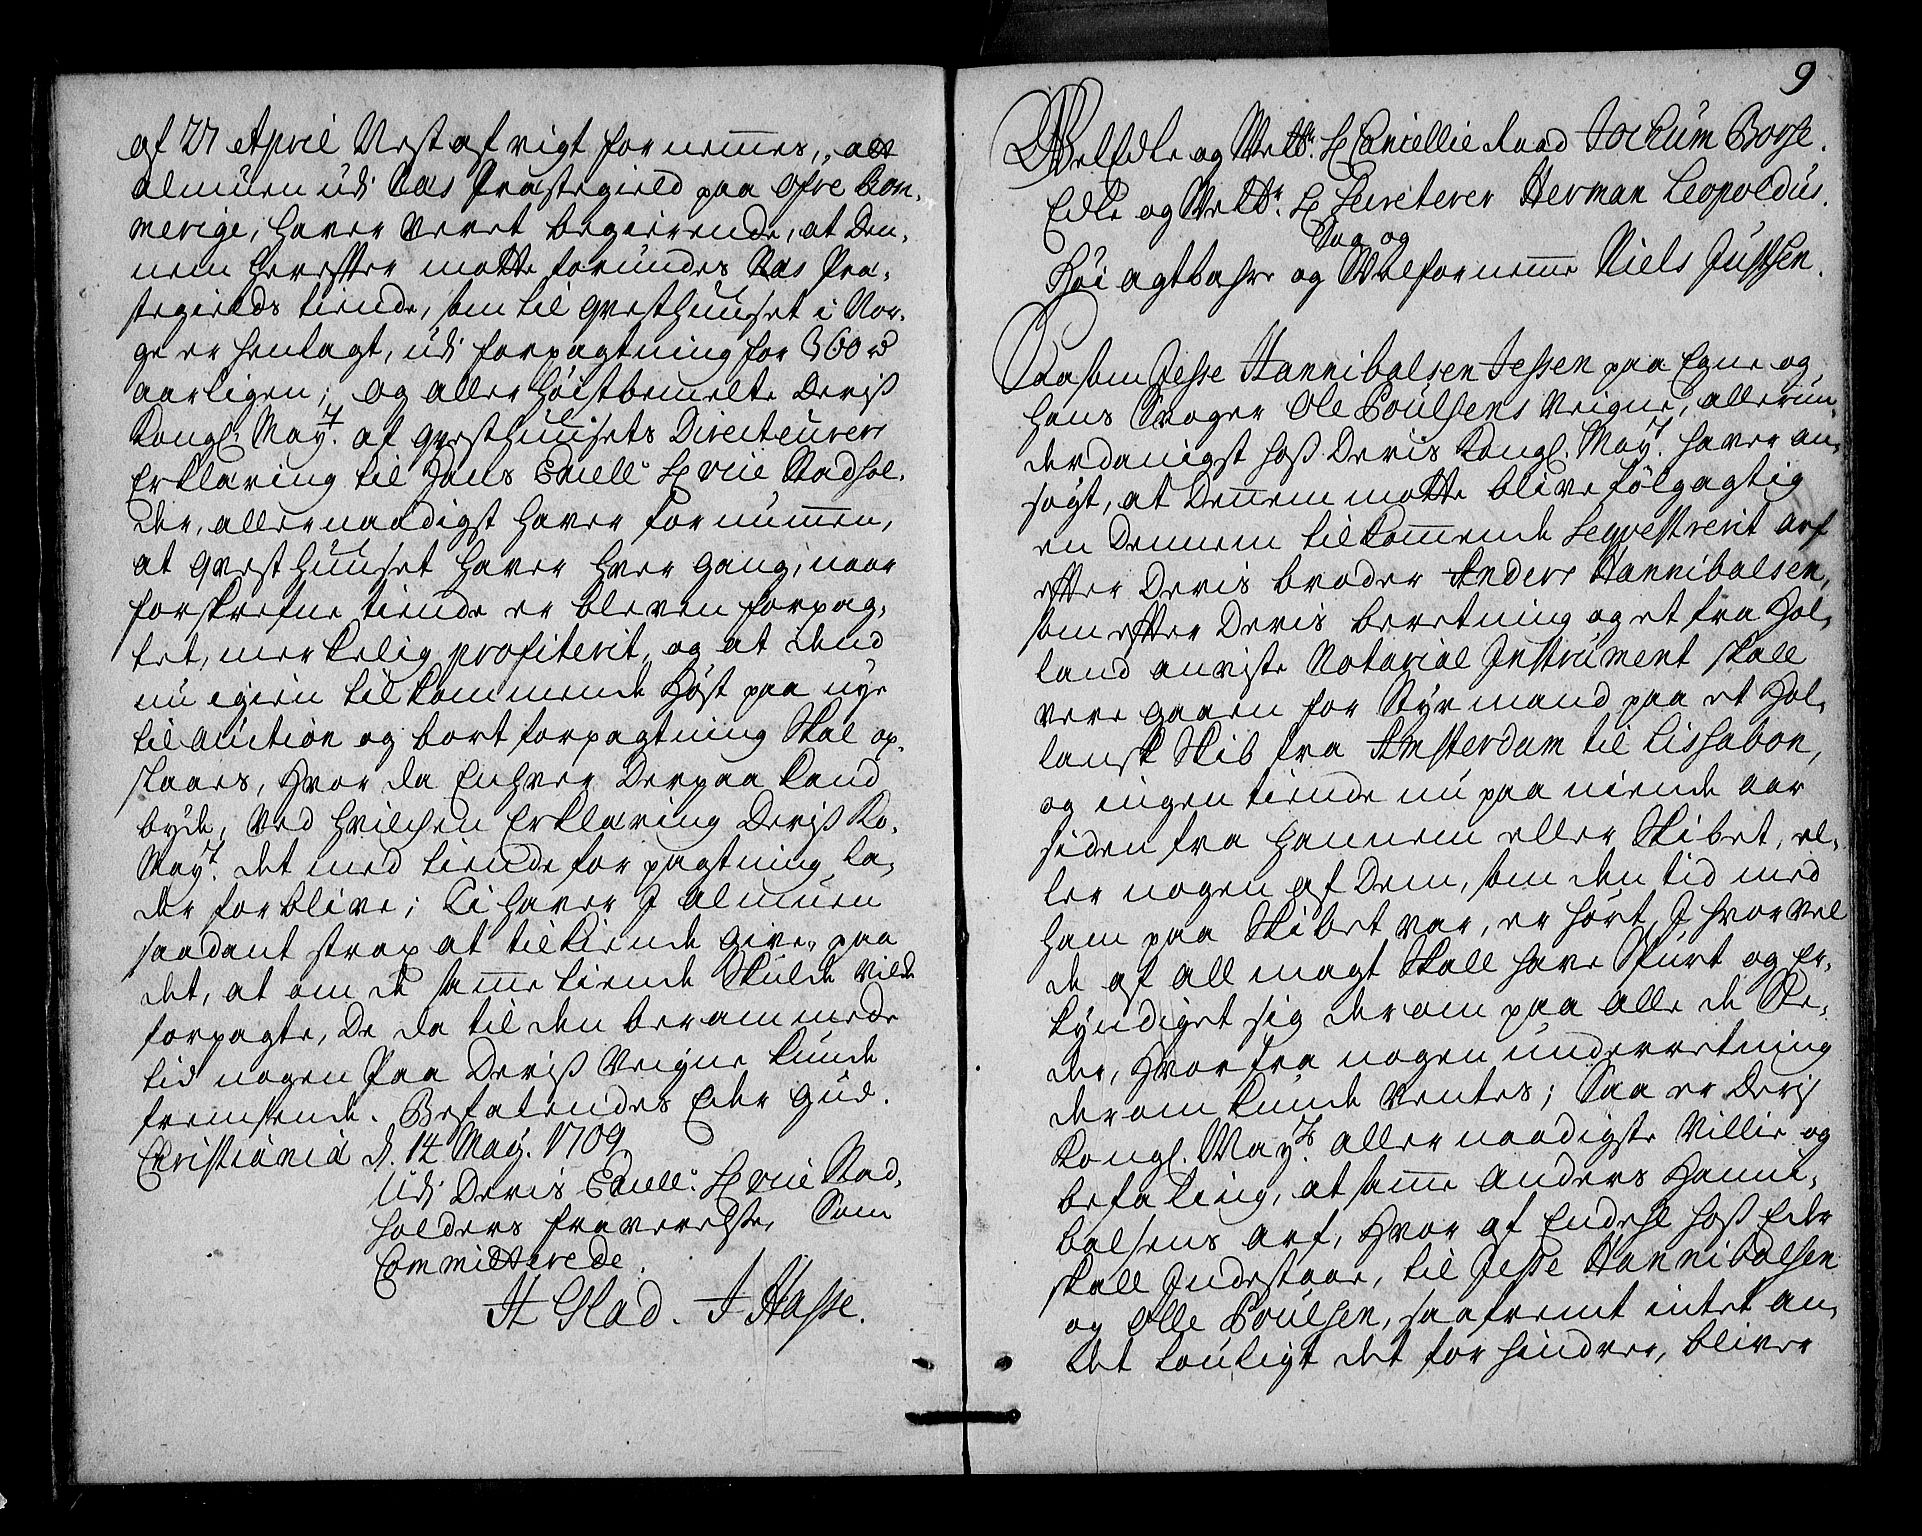 af 27 April Nestafvigt fornemmes, att
almuen udi Næs Præstegield paa Øfre Rom-
merige, haver veret begierende, at Den-
nem herefter motte forundes Næs Præ-
stegields tiende, som til Qvesthuuset i Nor-
ge er henlagt, udi forpagtning for 360 rd
aarligen; og allerhøistbemelte Deriss
Kongl. Mayt. af Qvesthuusets Directeurers
Erklæring til Hans Excell. Hr Vice Stadhol-
der, allernaadigst haver fornummen,
at Qvesthuuset haver hver gang, naar
forskrefne tiende er bleven forpag-
tet, merkelig profiterit, og at dend
nu igien tilkommende Høst paa nye
til auction og bortforpagtning skal op-
slaaes, hvor da Enhver derpaa kand
byde, ved hvilchen Erklæring Deriss Ko.
Mayt. det med tiende forpagtning la-
der forblive; Ti haver I almuen
saadant strax at tilkiende give, paa
det, at om de samme tiende skulde vilde
forpagte, De da til den berammede
tid nogen paa Deriss Veigne kunde
fremsende. Befalendes Eder Gud.
Christiania d. 14 May. 1709
Udi Deris Excell. Hr Vice Stad-
holders fraverelse, Som
Committerede.
H Glad. J Hasse.
9
Velædle og Velb. Hr Cancellie Raad Jochum Borse.
Edle og Velb. Hr Secreterer Herman Leopoldus.
Sag og
Høi agtbahre og Welfornemme Niels Justsen.
Saasom Jesse Hannibalsen Jessen paa Egne og
hans Svoger Ole Poulsens Veigne, allerun-
derdanigst hoss Deris Kongl. Mayt. haver an-
søgt, at Dennem motte blive følgagtig
en Dennem tilkommende seqvestrerit arf
efter Deris broder Anders Hannibalsen,
som efter Deris beretning og et fra Hol-
land anviste Notarial Instrument skall
vere gaaen for Styrmand paa et Hol-
lansk Skib fra Amsterdam til Lissabon,
og ingen tiende nu paa niende aar
siden fra hannem eller Skibet, el-
ler nogen af Dem, som den tid med
ham paa Skibet var, er hørt, I hvorvel
de af all magt skall have spurt og er-
kyndiget sig derom paa alle de Ste-
der, hvorfra nogen underretning
derom kunde ventes; Saa er Deris
Kongl. Mayts. allernaadigste Villie og
befaling, at samme Anders Hanni-
balsens arf, hvor af Endehl hoss Eder
skall Indestaae, til Jesse Hannibalsen
og Olle Poulsen, saafremt intet an-
det louligt det forhindrer, bliver